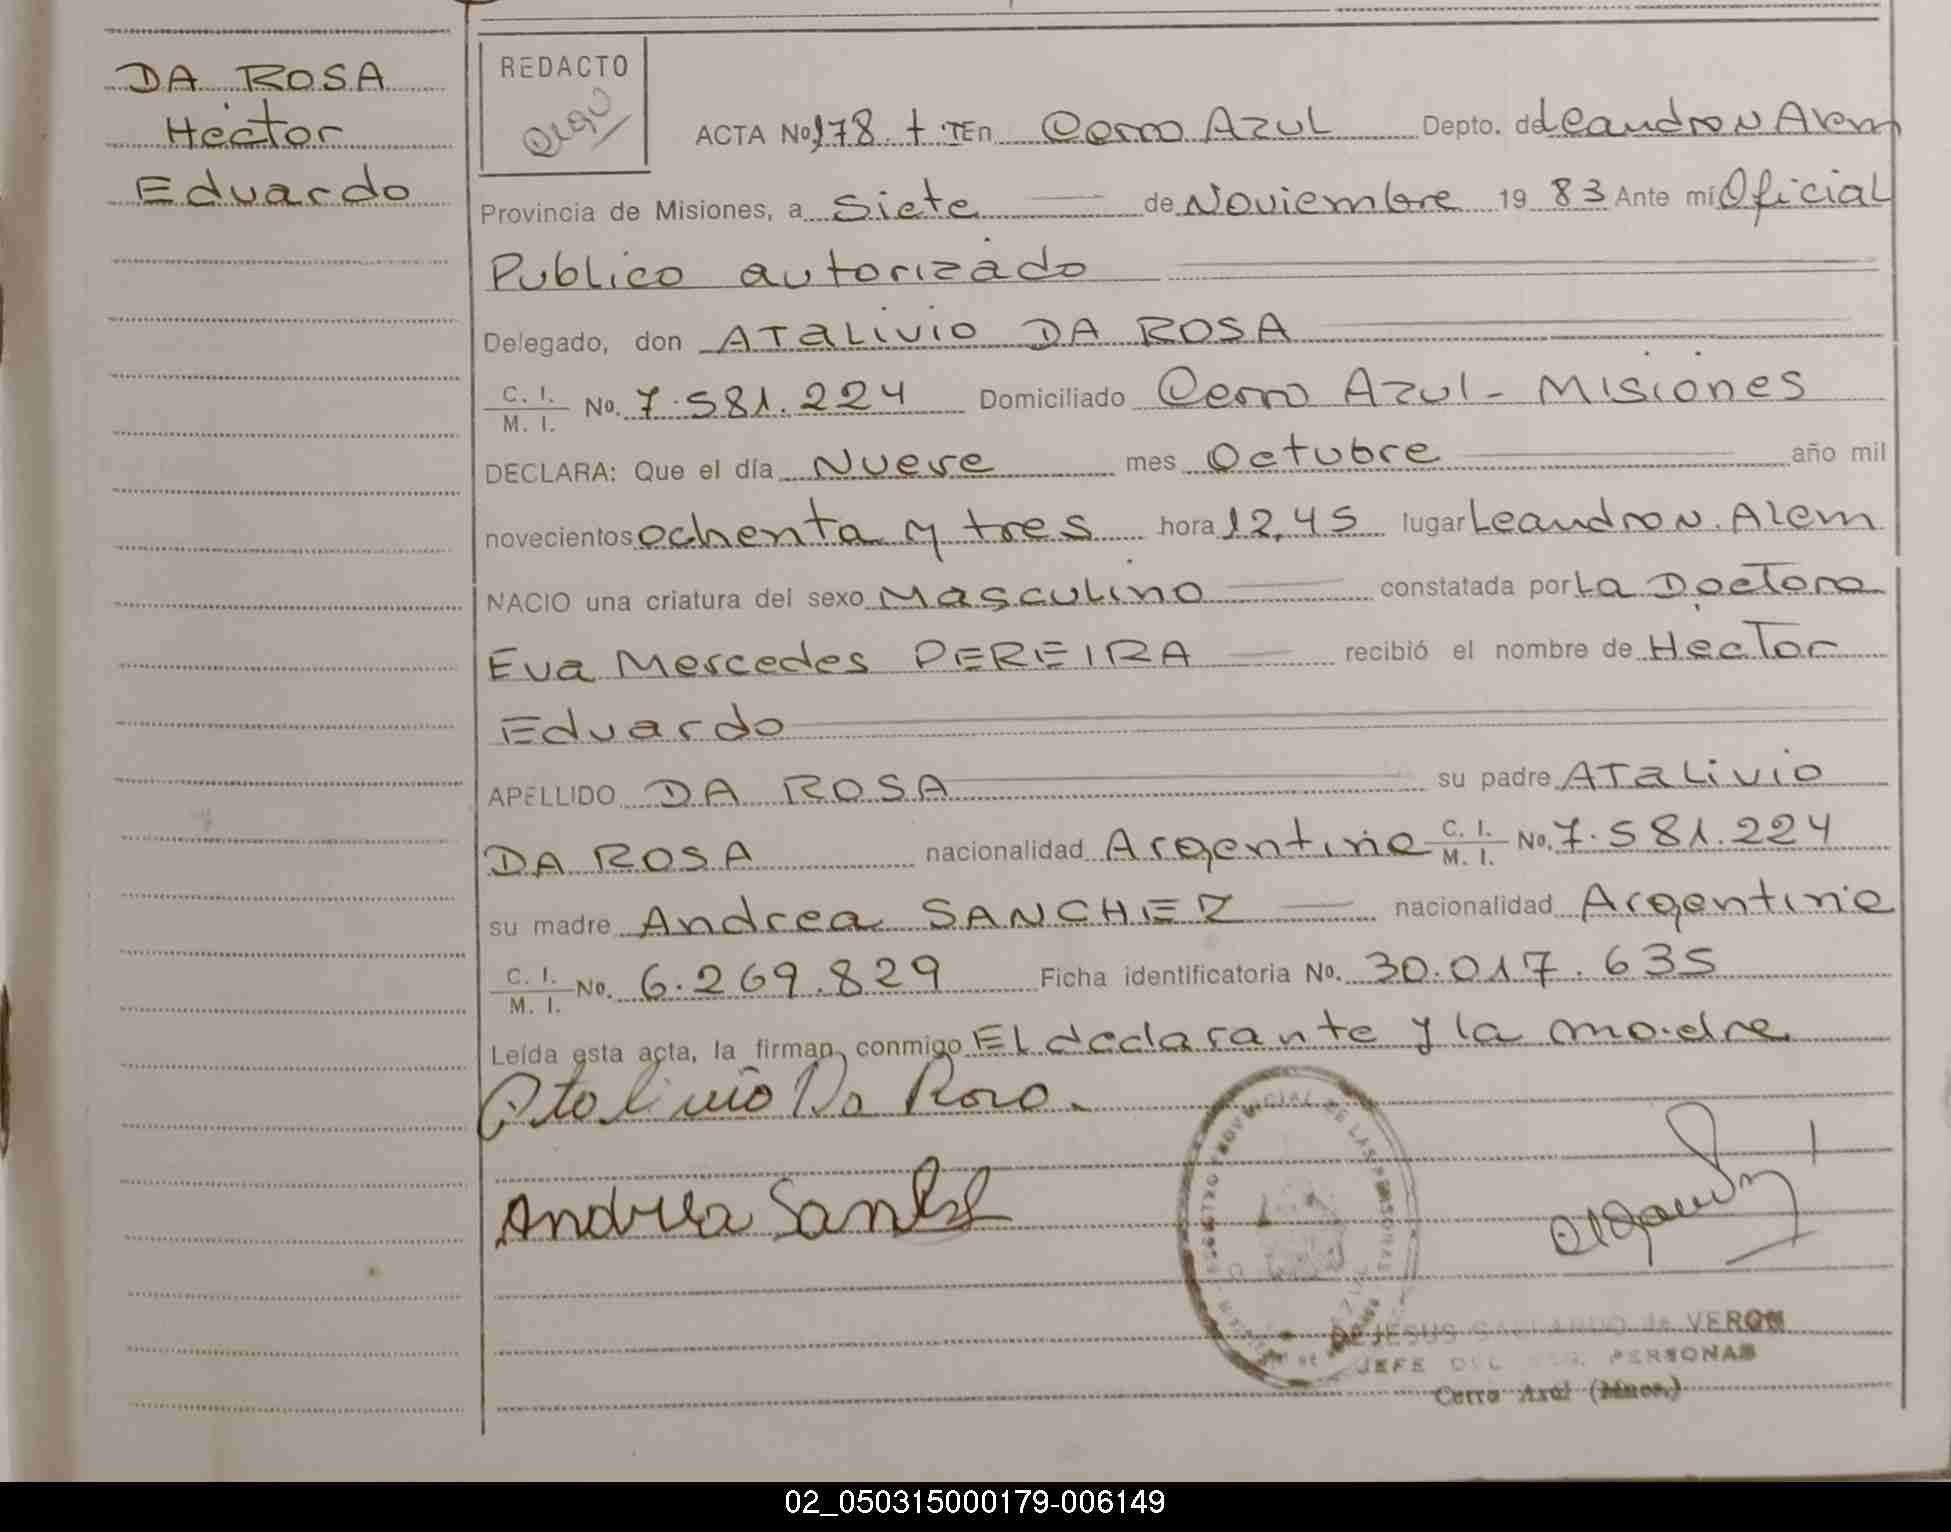 DA ROSA
Hector
Eduardo
REDACTO
ACTA No. 178 t. I En Cerro AZUL Depto. de Leandro N Alem
Provincia de Misiones, a siete de Noviembre 19 83 Ante mí Oficial
Publico autorizado
Delegado, don ATALIVIO DA ROSA
C. I. / M. I. No. 7.581.224 Domiciliado Cerro AZUL - MISIONES
DECLARA: Que el día Nueve mes Octubre año mil
novecientos ochenta y tres hora 12,45 lugar Leandro N. Alem
NACIO una criatura del sexo Masculino constatada por La Doctora
Eva Mercedes PEREIRA recibió el nombre de Hector
Eduardo
APELLIDO DA ROSA su padre ATALIVIO
DA ROSA nacionalidad Argentina C. I. / M. I. No. 7.581.224
su madre Andrea SANCHEZ nacionalidad Argentina
C. I. / M. I. No. 6.269.829 Ficha identificatoria No. 30.017.635
Leída esta acta, la firman conmigo El declarante y la madre
Atalivio Da Rosa.
Andrea
REGISTRO PROVINCIAL DE LAS PERSONAS
DE JESUS de VERON
JEFE DEL REG. PERSONAS
Cerro Azul (Mnes.)
02_050315000179-006149